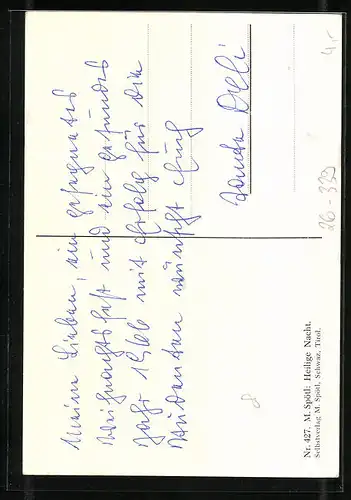 Meine Lieben, ein gesegnetes
Weihnachtsfest und ein gesundes
Jahr 1966 mit Erfolg für die
Studenten wünscht Euch
Tante
Nr. 427. M. Spötl: Heilige Nacht.
Selbstverlag M. Spötl, Schwaz, Tirol.
26-339
4,-